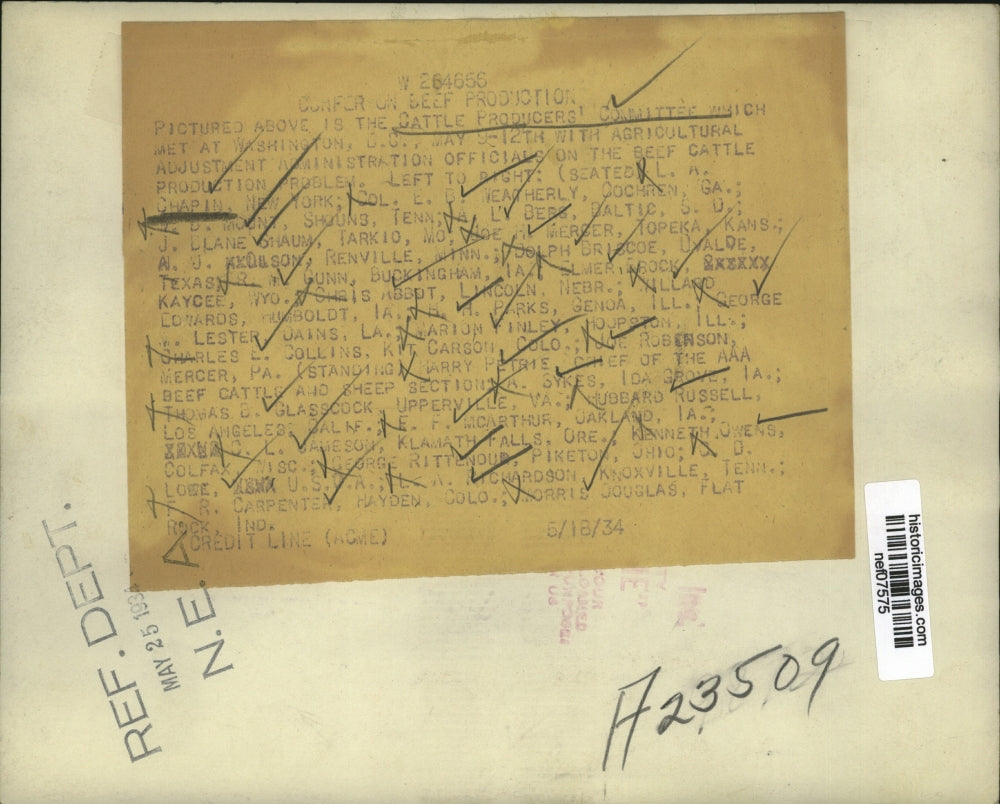 W 264656
CONFER ON BEEF PRODUCTION
PICTURED ABOVE IS THE CATTLE PRODUCERS' COMMITTEE WHICH
MET AT WASHINGTON, D.C., MAY 9-12TH WITH AGRICULTURAL
ADJUSTMENT ADMINISTRATION OFFICIALS ON THE BEEF CATTLE
PRODUCTION PROBLEM. LEFT TO RIGHT: (SEATED) L. A.
CHAPIN, NEW YORK; COL. E. B. WEATHERLY, COCHREN, GA.;
D. MOUNT, SHOUNS, TENN; A. L. BERG, BALTIC, S. D.;
J. BLANE SHAUM, TARKIO, MO, JOE H. MERCER, TOPEKA, KANS.;
A. J. OLSON, RENVILLE, MINN.; DOLPH BRISCOE, UVALDE,
TEXAS; R. M. GUNN, BUCKINGHAM, IA.; ELMER BROCK, XXXXXX
KAYCEE, WYO.; CHRIS ABBOT, LYNCOLN, NEBR.; WILLARD
EDWARDS, HUMBOLDT, IA.; H. H. PARKS, GENOA, ILL.; GEORGE
LESTER DAINS, LA.; MARION FINLEY, HOOPSTON, ILL.;
CHARLES E. COLLINS, KIT CARSON, COLO.; ROBERSON,
MERCER, PA. (STANDING) HARRY PETRIE, CHIEF OF THE AAA
BEEF CATTLE AND SHEEP SECTION; A. SYKES, IDA GROVE, IA.;
THOMAS B. GLASSCOCK, UPPERVILLE, VA.; HUBBARD RUSSELL,
LOS ANGELES, CALIF.; E. F. MCARTHUR, OAKLAND, IA.;
L. JAMESON, KLAMATH FALLS, ORE., KENNETH OWENS,
COLFAX, WISC.; GEORGE RITTENOUR, PIKETON, OHIO; D.
LOWE, XXXX U.S.D.A.; H. A. RICHARDSON, KNOXVILLE, TENN.;
R. CARPENTER, HAYDEN, COLO.; MORRIS DOUGLAS, FLAT
ROCK, IND.
CREDIT LINE (ACME) 5/18/34
REF. DEPT.
MAY 25 1934
N. E. A.
historicimages.com
nef07575
A23509